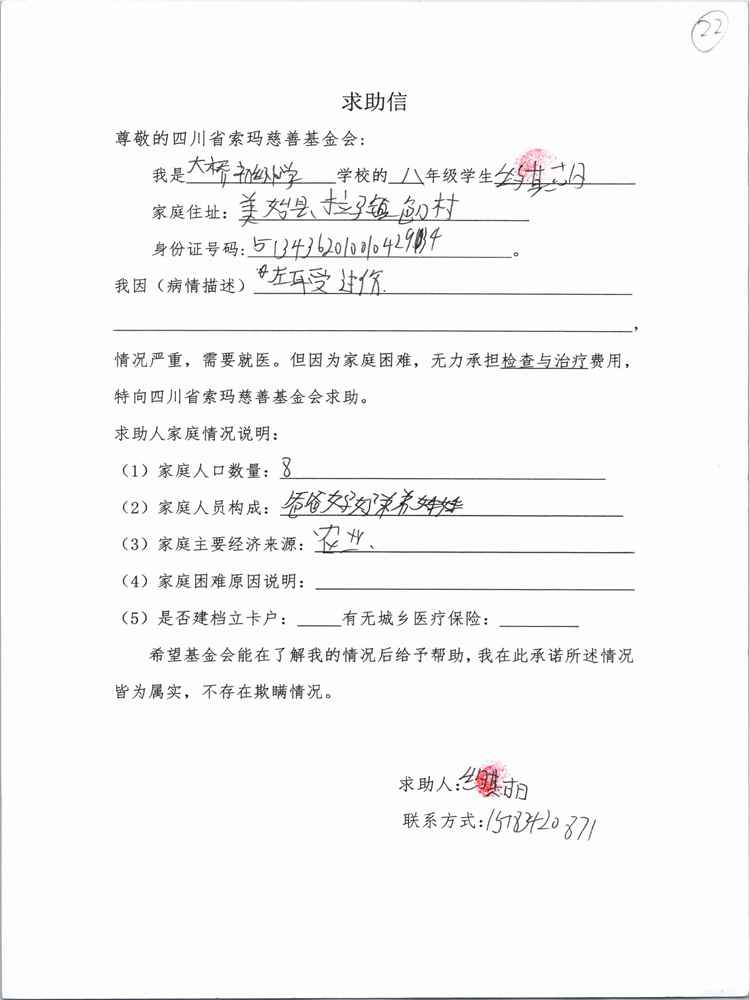 22
求助信
尊敬的四川省索玛慈善基金会:
我是大桥 学校的 八年级学生
家庭住址: 美姑县、拉 镇 村
身份证号码: 。
我因（病情描述）左耳受过伤.
，
情况严重，需要就医。但因为家庭困难，无力承担检查与治疗费用，
特向四川省索玛慈善基金会求助。
求助人家庭情况说明:
（1）家庭人口数量: 8
（2）家庭人员构成: 爸爸 弟弟
（3）家庭主要经济来源: 农业、
（4）家庭困难原因说明:
（5）是否建档立卡户: 有无城乡医疗保险:
希望基金会能在了解我的情况后给予帮助,我在此承诺所述情况
皆为属实，不存在欺瞒情况。
求助人:
联系方式: